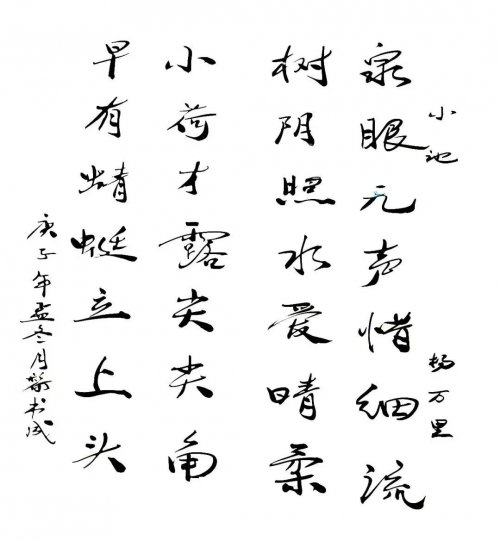 小池 杨万里
泉眼无声惜细流
树阴照水爱晴柔
小荷才露尖尖角
早有蜻蜓立上头
庚子年孟冬月书成